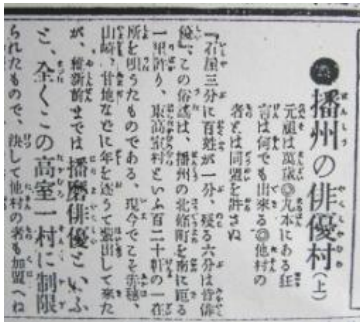 播州の俳優村（上）
元祖は萬歳◎丸本にある狂
言は何でも出来る◎他村の
者とは同盟を許さぬ
『石屋三分に百姓が一分、残る六分は皆俳
優』、この俗謡は、播州の北條町を南に距る
一里許り、東高室村といふ百二十軒の一在
所を唄うたものである、現今でこそ赤穂、
山崎、甘地などに年を逐うて張出して来た
が、維新前までは播磨俳優といふ
と、全くこの高室一村に制限
られたもので、決して他村の者も加盟へね